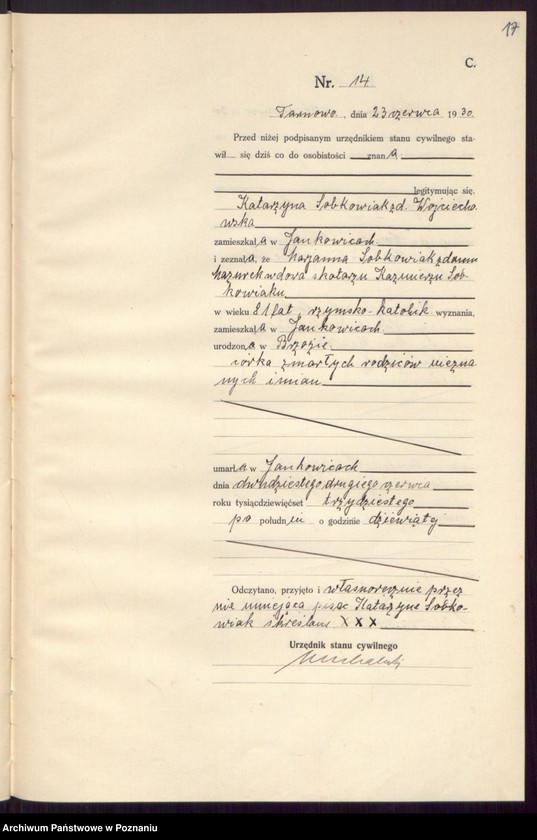 17
C.
Nr. 14
Tarnowo, dnia 23 czerwca 1930.
Przed niżej podpisanym urzędnikiem stanu cywilnego sta-
wił się dziś co do osobistości znana
legitymując się.
Katarzyna Sobkowiak zd. Wojciecho
wska
zamieszkała w Jankowicach
i zeznała, że Marjanna Sobkowiak z domu
Mazurek wdowa po Kazimierzu Sob-
kowiaku
w wieku 81 lat, rzymsko-katolik wyznania,
zamieszkała w Jankowicach
urodzona w Brzozie
córka zmarłych rodziców niezna
nych imian
umarła w Jankowicach
dnia dwudziestego drugiego czerwca
roku tysiącdziewięćset trzydziestego
po południu o godzinie dziewiątej
Odczytano, przyjęto i własnoręcznie przez
nie umiejąca pisać Katarzynę Sobko-
wiak skreślone X X X
Urzędnik stanu cywilnego
Archiwum Państwowe w Poznaniu